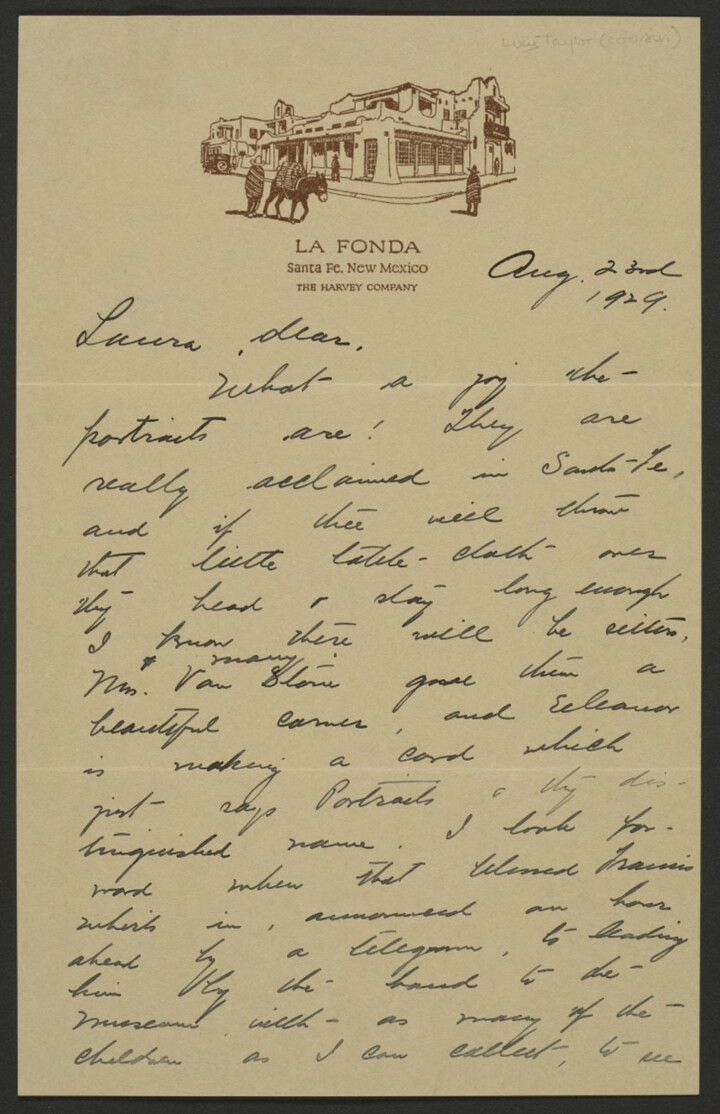 LA FONDA
Santa Fe, New Mexico
THE HARVEY COMPANY
Aug. 23rd
1929.
Laura dear,
What a joy the
portraits are! They are
really acclaimed in Santa Fe,
and if thee will throw
that little table-cloth over
thy head & stay long enough
I know there will be sitters,
& many.
Mrs. Van gave them a
beautiful corner, and Eeleanor
is making a card which
just says Portraits & thy dis-
tinguished name. I look for-
ward when that blessed Francis
in, announced an hour
ahead by a telegram, to leading
him by the hand to the
museum with as many of the
children as I can collect, to see